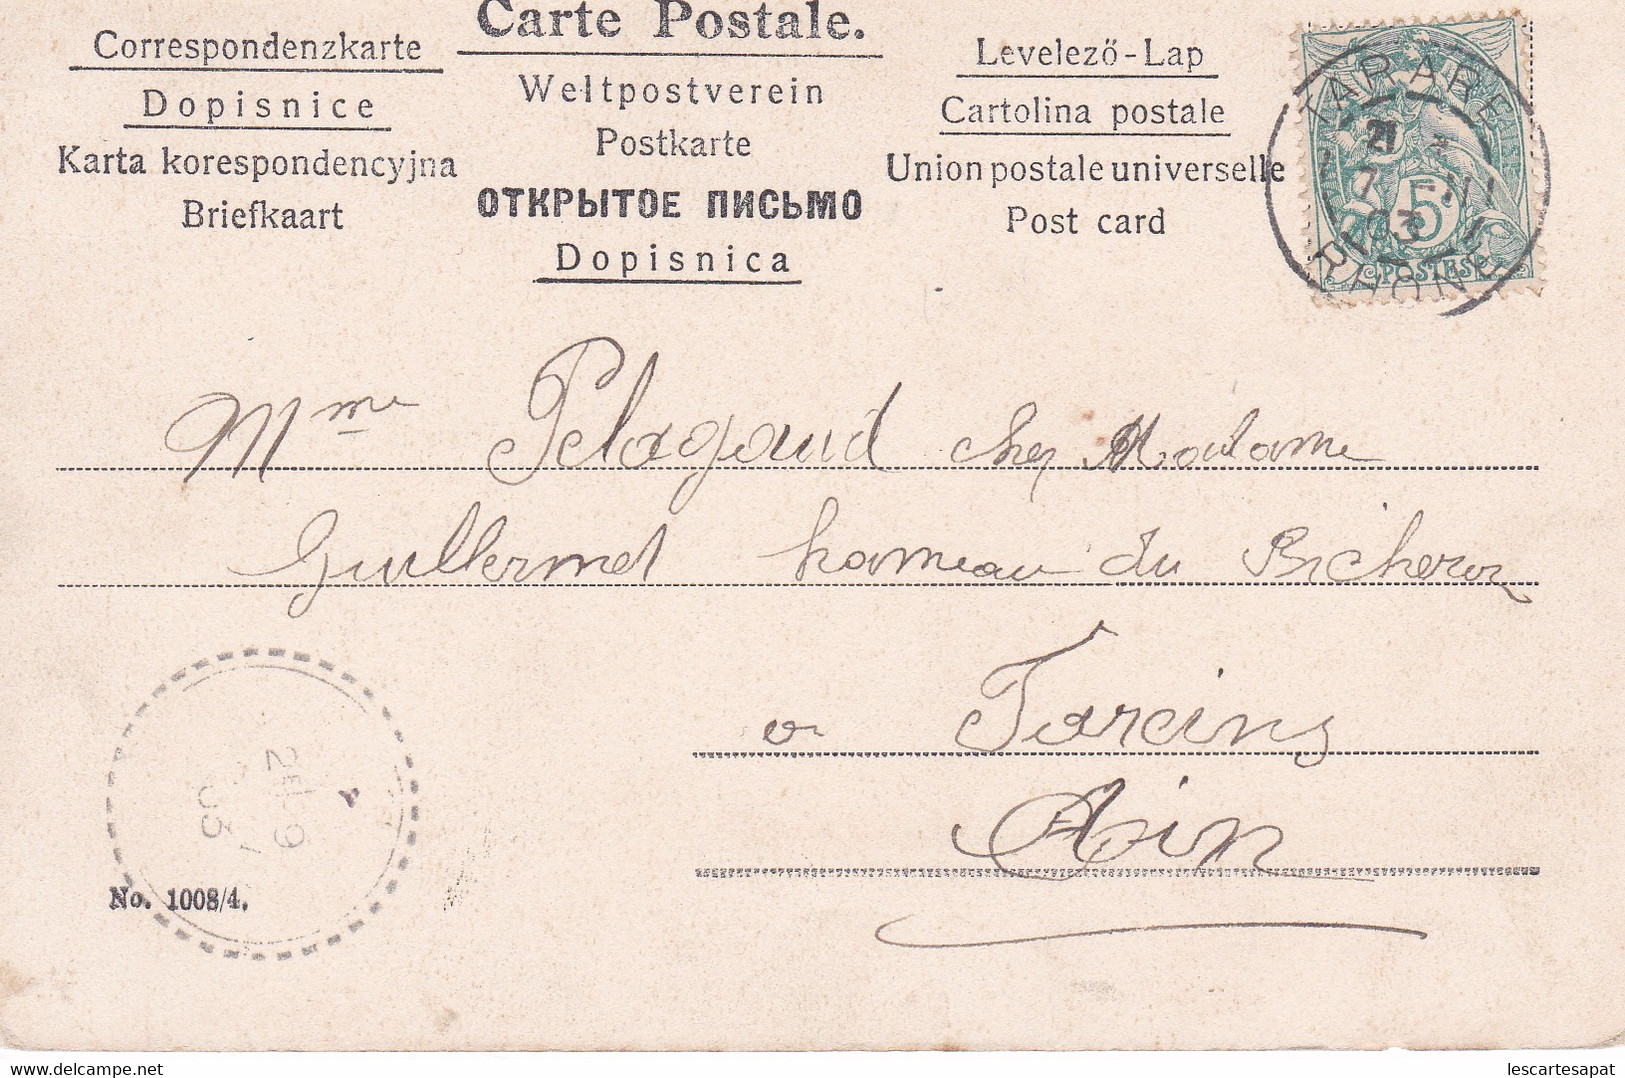 Carte Postale.
Correspondenzkarte
Dopisnice
Karta korespondencyjna
Briefkaart
Weltpostverein
Postkarte
ОТКРЫТОЕ ПИСЬМО
Dopisnica
Levelező-Lap
Cartolina postale
Union postale universelle
Post card
TARARE
21
7
03
RHONE
5
POSTES
Mme Pelagaud chez Madame
Guillermet hameau du Bicheron
a Farcins
Ain
21-9
03
No. 1008/4.
www.delcampe.net
lescartesapat